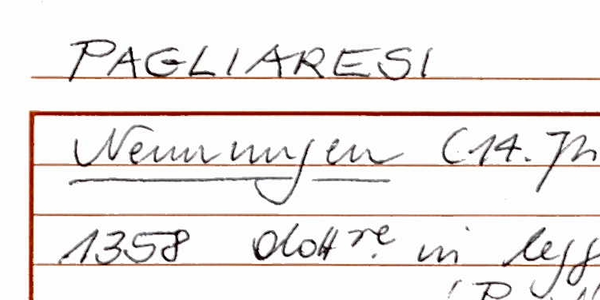 PAGLIARESI
Nennungen (14. Jh
1358 dott.re in legg